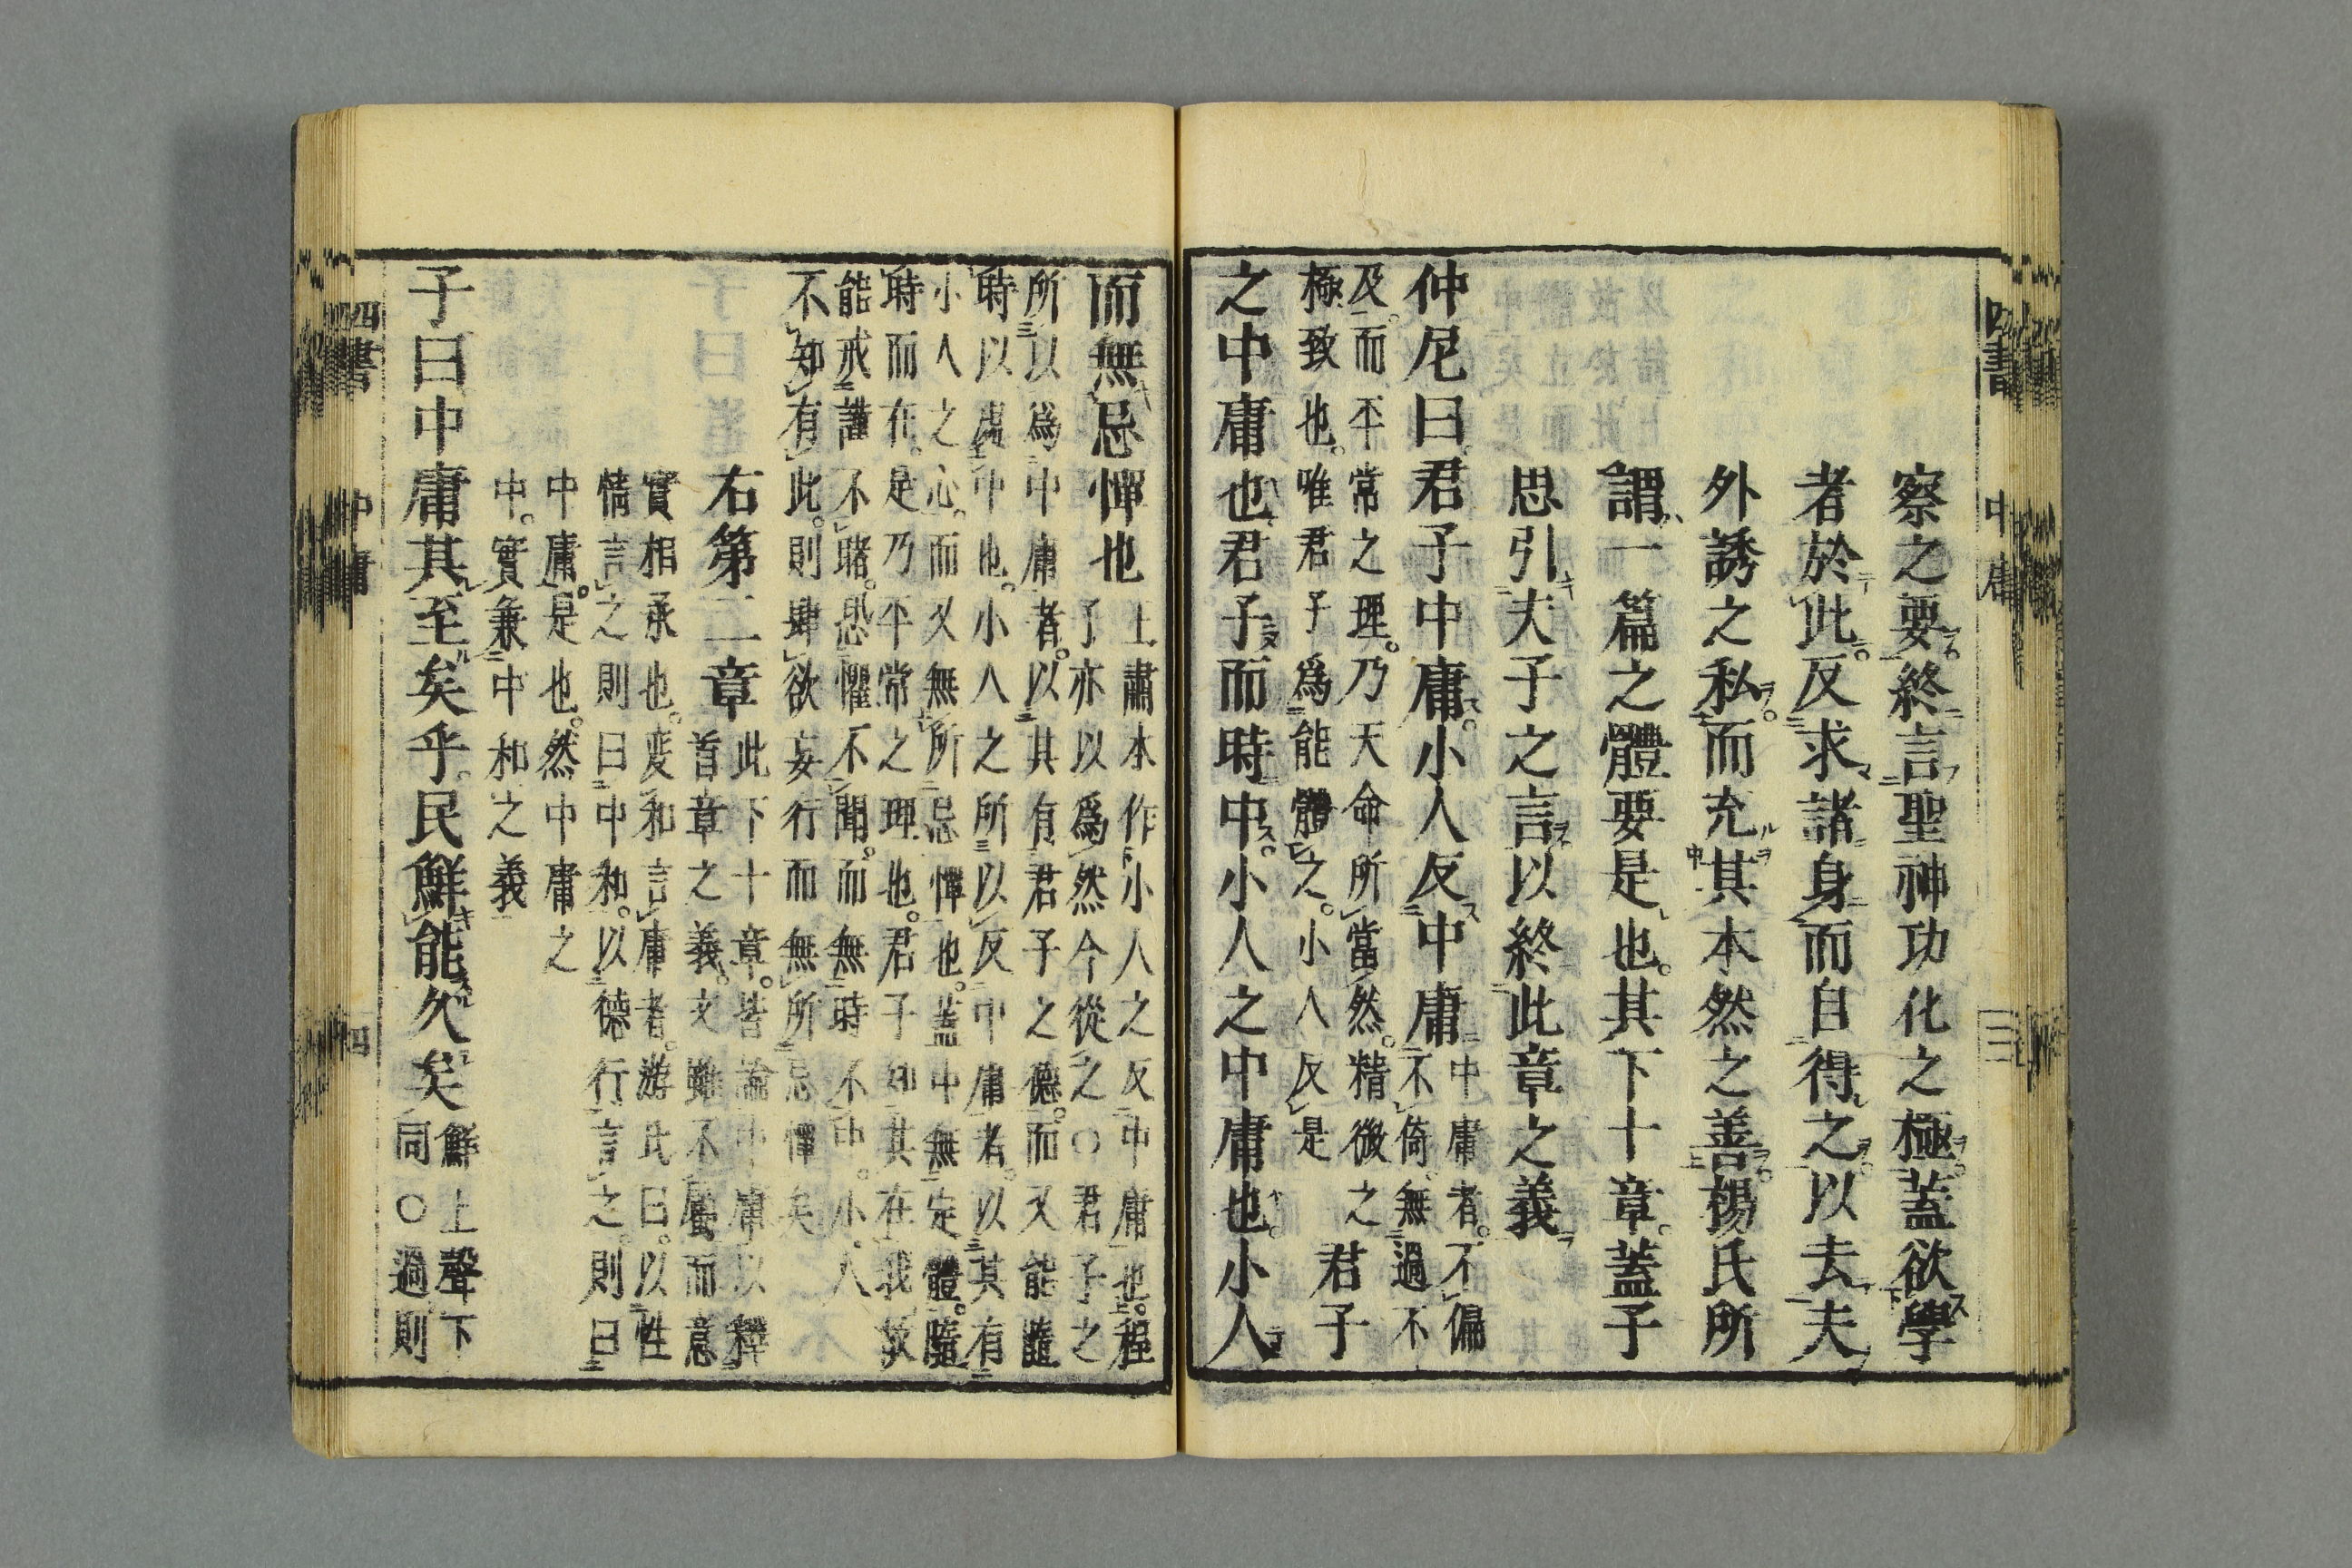 察之要終言聖神功化之極蓋欲學
者於此反求諸身而自得之以去夫
外誘之私而充其本然之善楊氏所
謂一篇之體要是也其下十章蓋子
思引夫子之言以終此章之義
仲尼曰君子中庸小人反中庸
中庸者不偏
不倚無過不
及而平常之理乃天命所當然精微之
極致也唯君子為能體之小人反是
君子
之中庸也君子而時中小人之中庸也小人
而無忌憚也
王肅本作小人之反中庸也程
子亦以為然今從之○君子之
所以為中庸者以其有君子之德而又能隨
時以處中也小人之所以反中庸者以其有
小人之心而又無所忌憚也蓋中無定體隨
時而在是乃平常之理也君子知其在我故
能戒謹不睹恐懼不聞而無時不中小人
不知有此則肆欲妄行而無所忌憚矣
右第二章
此下十章皆論中庸以釋
首章之義文雖不屬而意
實相承也変和言庸者游氏曰以性
情言之則曰中和以德行言之則曰
中庸是也然中庸之
中實兼中和之義
子曰中庸其至矣乎民鮮能久矣
鮮上聲下
同○過則
四書
中庸
三
四書
中庸
四